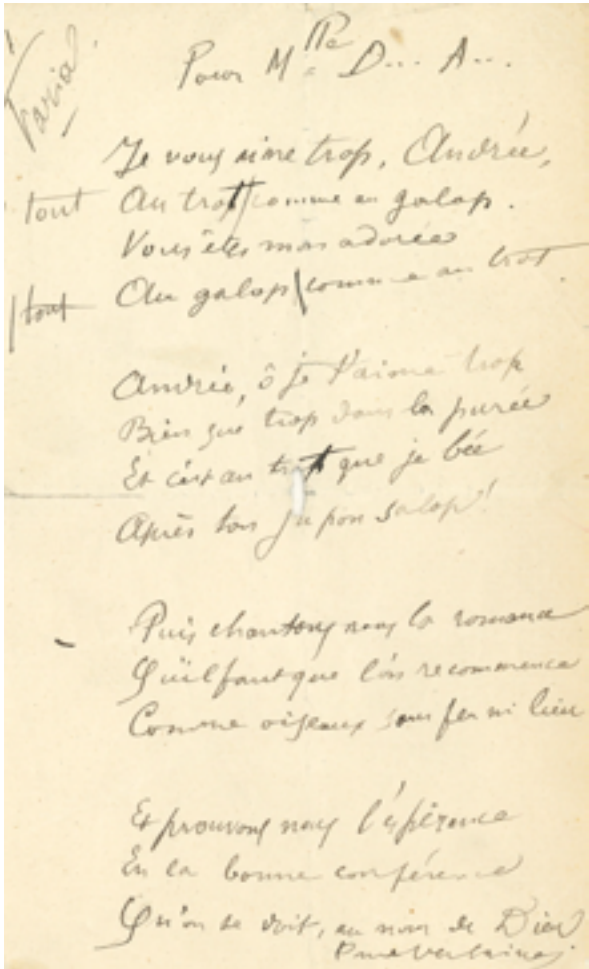 Varia
Pour Mlle D... A...
Je vous aime trop, Andrée,
tout Au trot comme au galop.
Vous êtes mon adorée
tout Au galop comme au trot.
Andrée, ô je t'aime trop
Bien que trop dans la purée
Et c'est au trot que je bée
Après ton jupon salop!
Puis chantons nous la romance
Qu'il faut que l'on recommence
Comme oiseaux sans feu ni lieu
Et prouvons nous l'espérence
En la bonne conférence
Qu'on se doit, au nom de Dieu
P. Verlaine